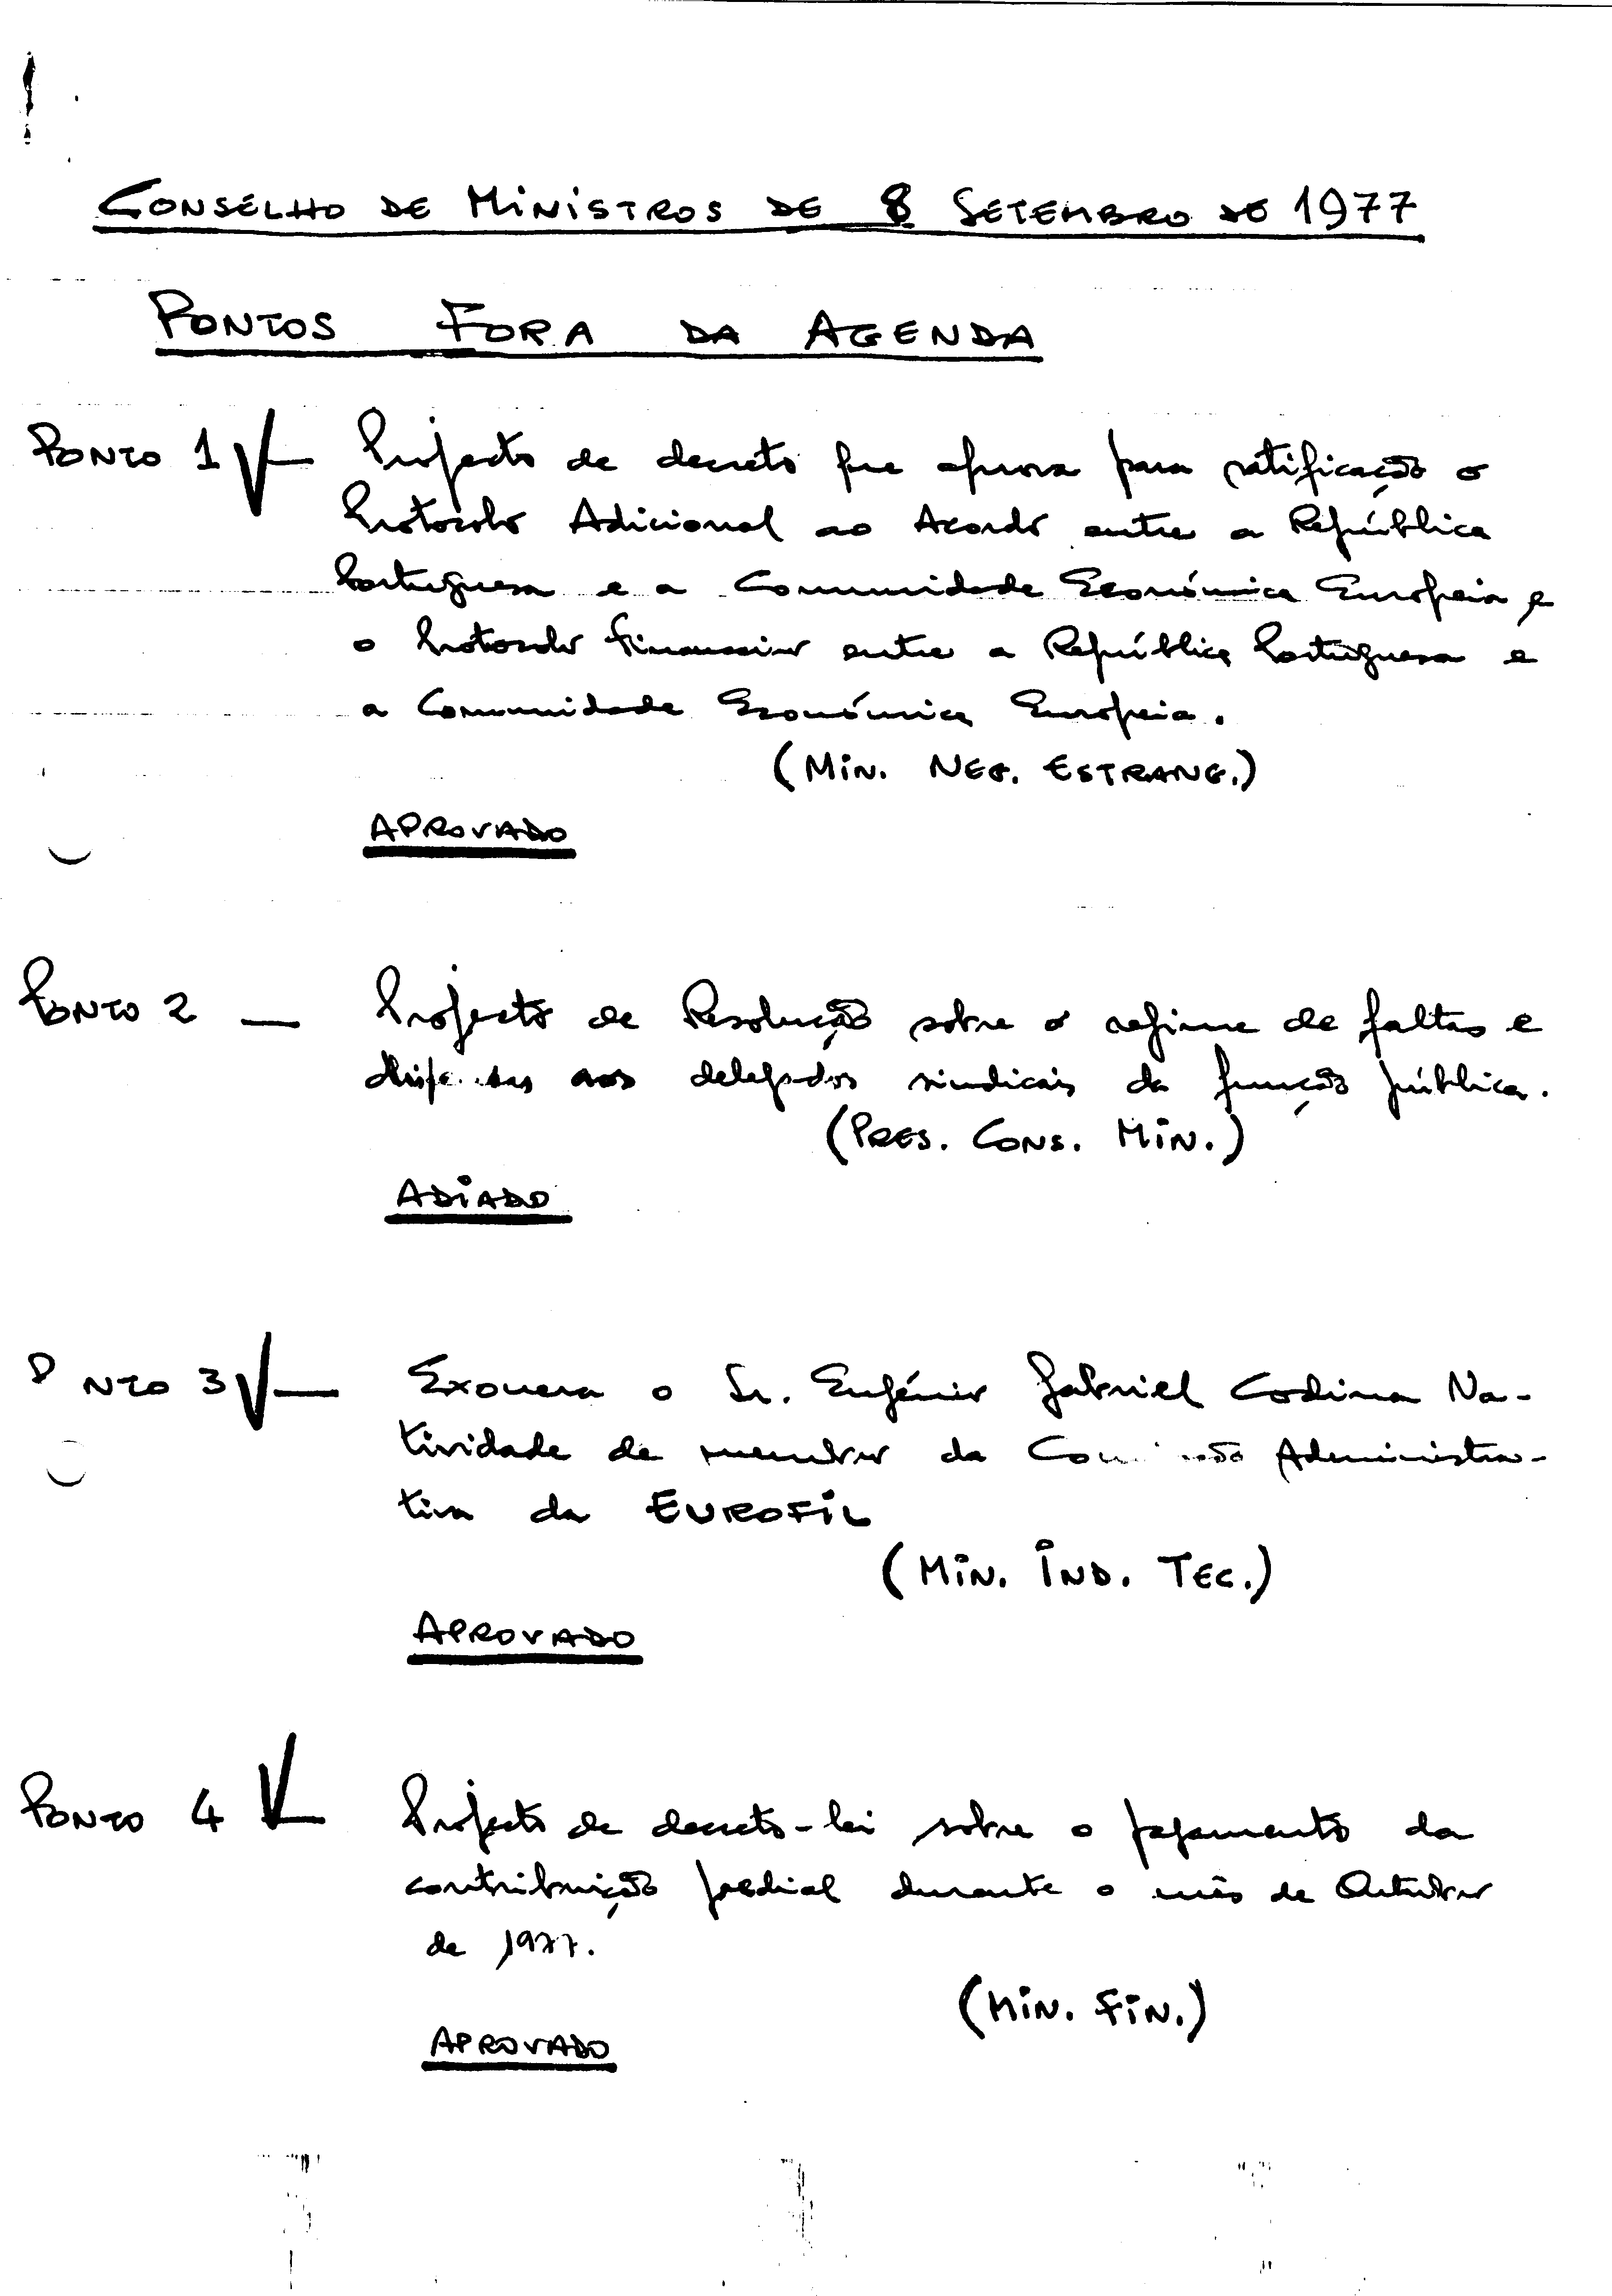 CONSELHO DE MINISTROS DE 8 SETEMBRO DE 1977
PONTOS FORA DA AGENDA
PONTO 1 √ — Projecto de decreto que aprova para ratificação o
Protocolo Adicional ao Acordo entre a República
Portuguesa e a Comunidade Económica Europeia e
o Protocolo Financeiro entre a República Portuguesa e
a Comunidade Económica Europeia.
(MIN. NEG. ESTRANG.)
APROVADO
PONTO 2 — Projecto de Resolução sobre o regime de faltas e
dispensas aos delegados sindicais da função pública.
(PRES. CONS. MIN.)
ADIADO
PONTO 3 √ — Exonera o Sr. Eugénio Gabriel Codina Na-
tividade de membro da Comissão Administra-
tiva da EUROFIL
(MIN. IND. TEC.)
APROVADO
PONTO 4 √ — Projecto de decreto-lei sobre o pagamento da
contribuição predial durante o mês de Outubro
de 1977.
(MIN. FIN.)
APROVADO